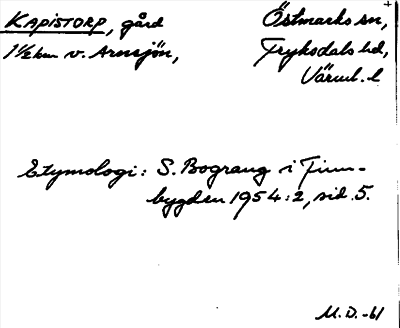 KAPISTORP, gård
1½ km v. Arnsjön,
Östmarks sn,
Fryksdals hd,
Värml. l
Etymologi: S. Bograng i Finn-
bygden 1954:2, sid. 5.
M.D.-61